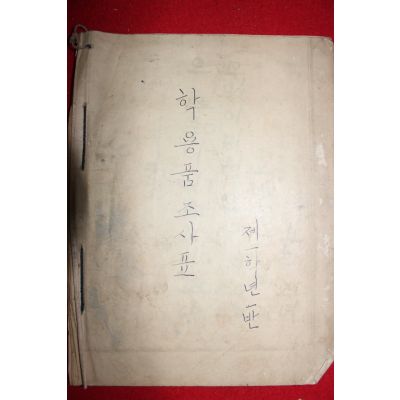 학용품조사표
제一하년一반